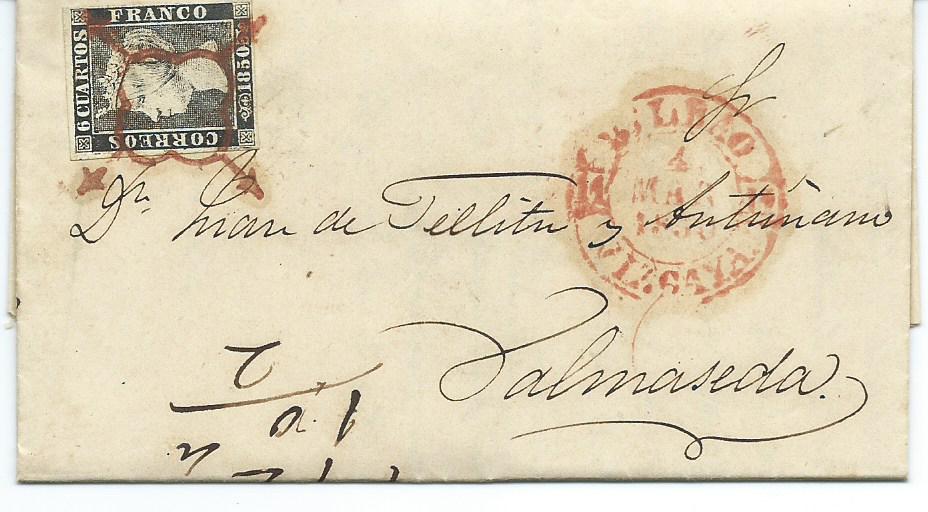 FRANCO
6 CUARTOS
1850
CORREOS
Sr
4
MAR
VIZCAYA.
Dn. Juan de Tellitu y Antuñano
Valmaseda.